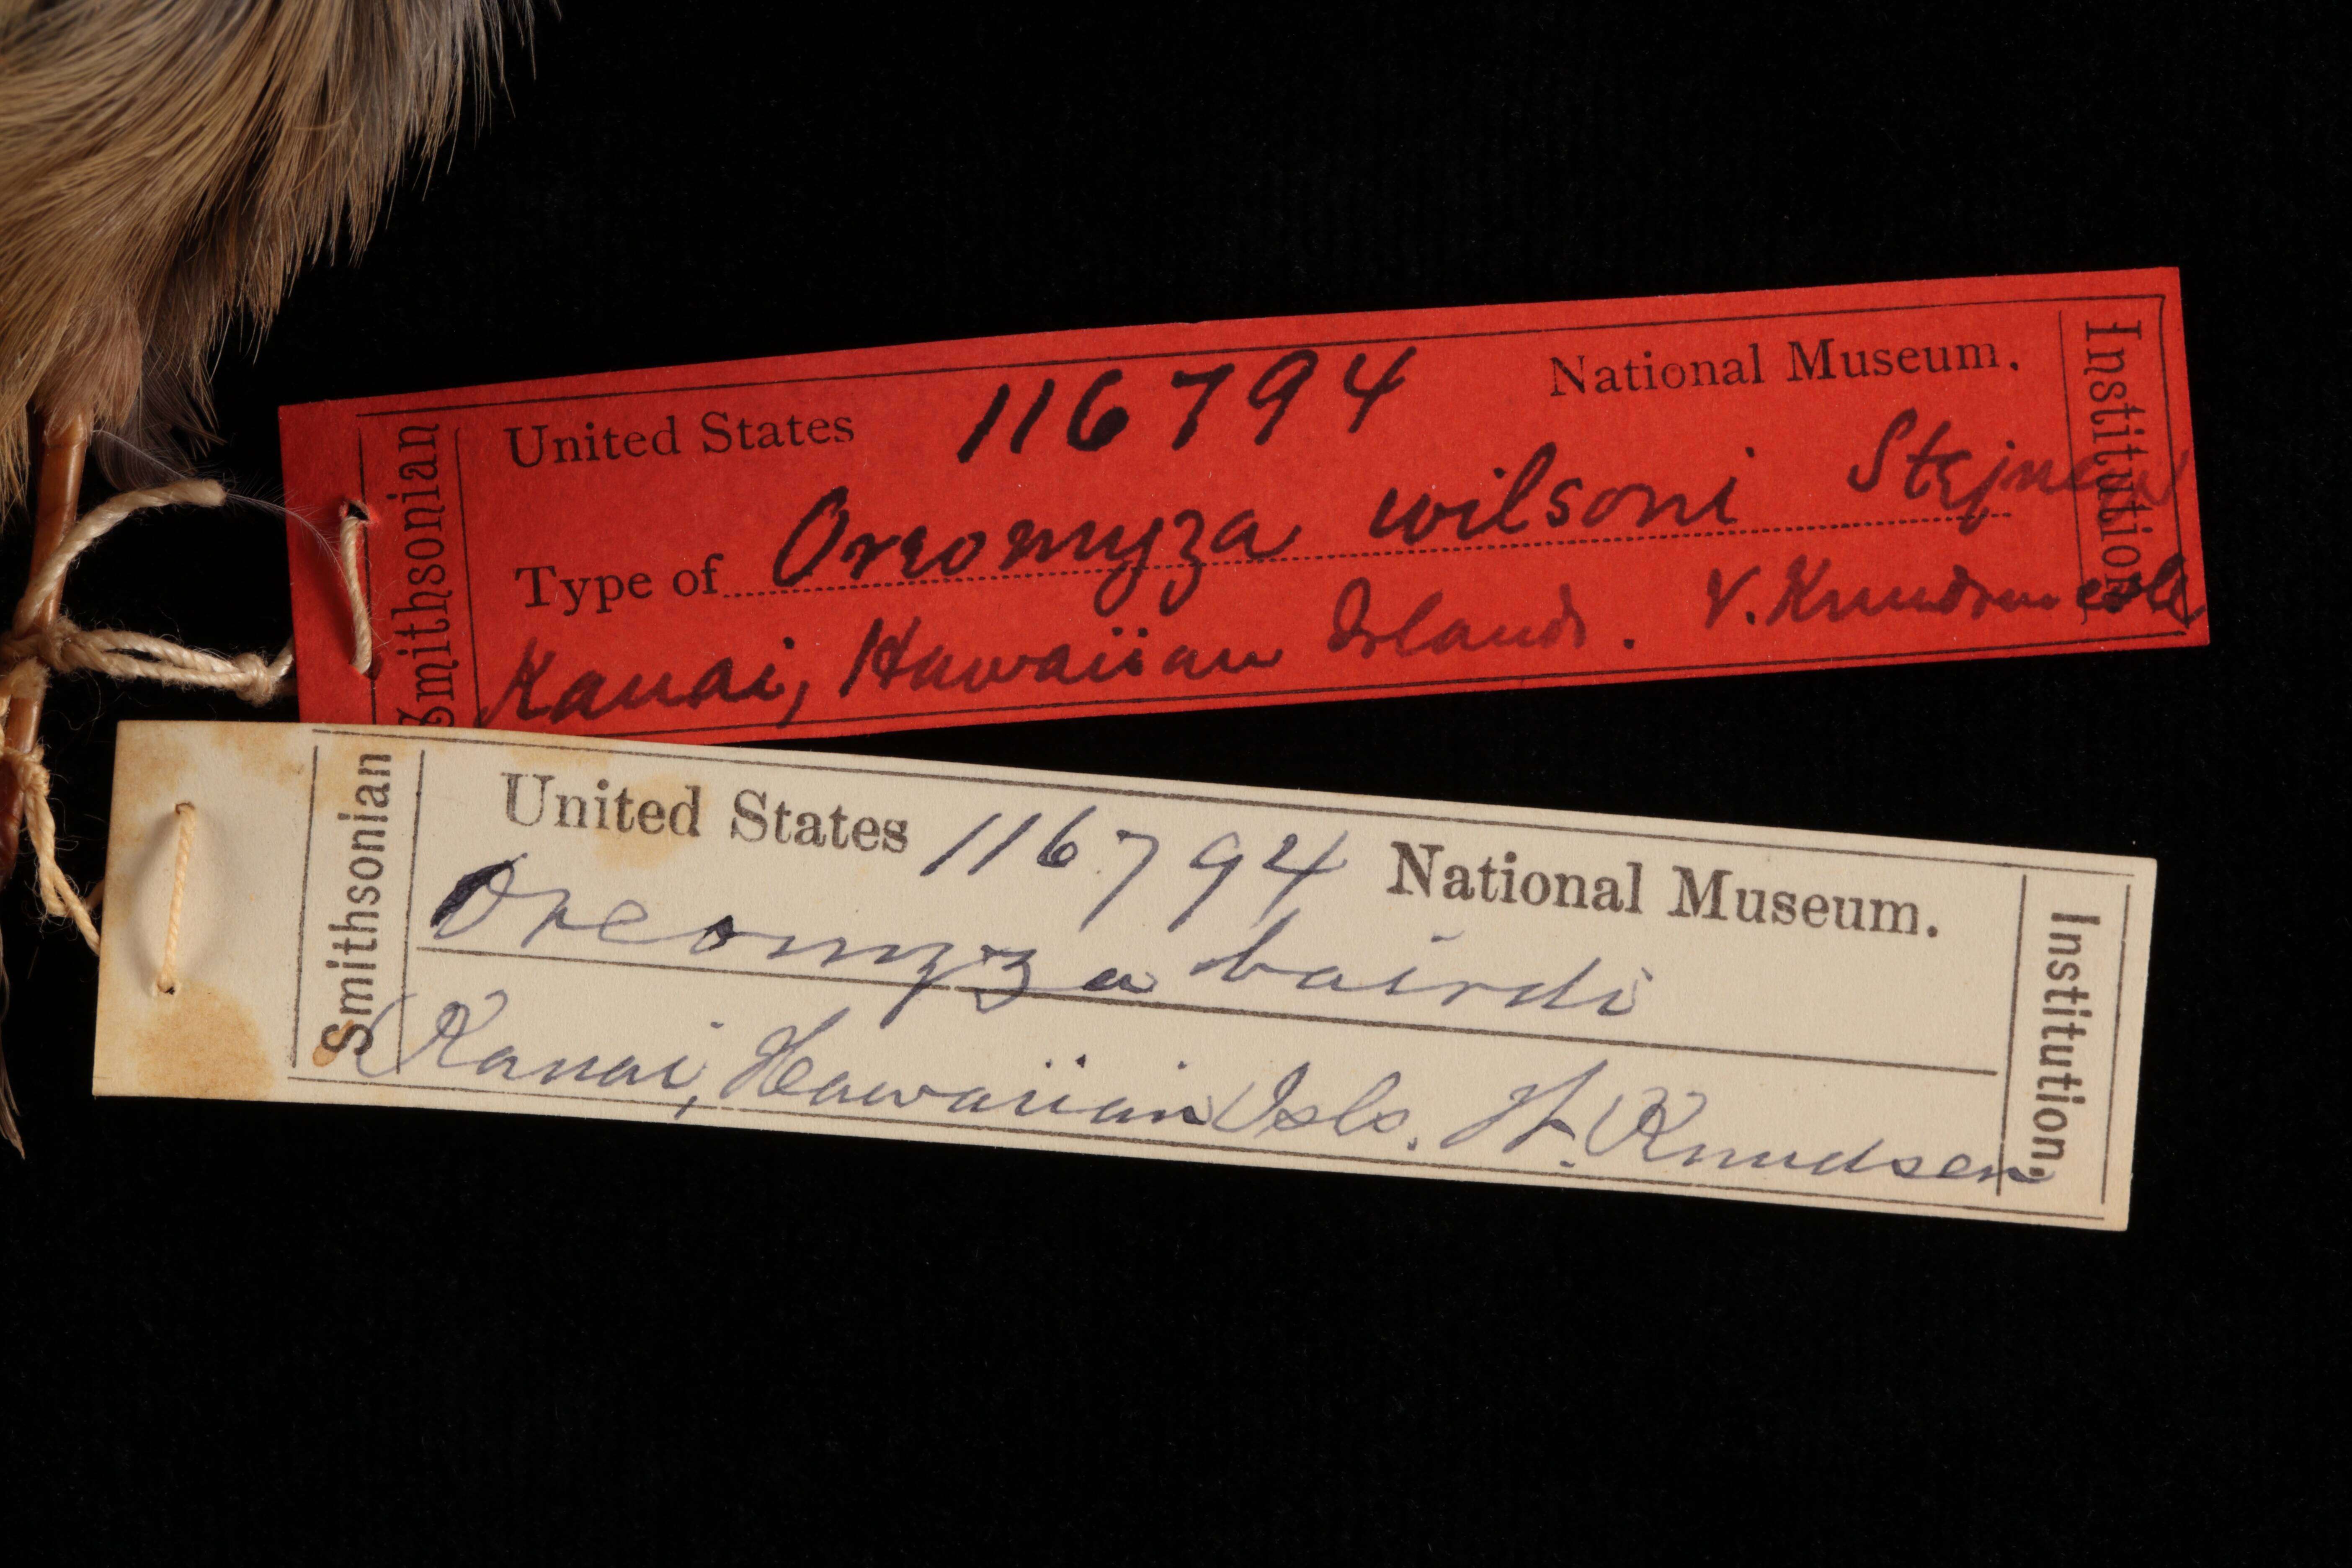 Smithsonian
United States 116794 National Museum.
Type of Oreomyza wilsoni Stejneger
Kauai, Hawaiian Islands. V. Knudsen coll
Institution
Smithsonian
United States 116794 National Museum.
Oreomyza bairdi
Kauai, Hawaiian Isls. Knudsen
Institution.